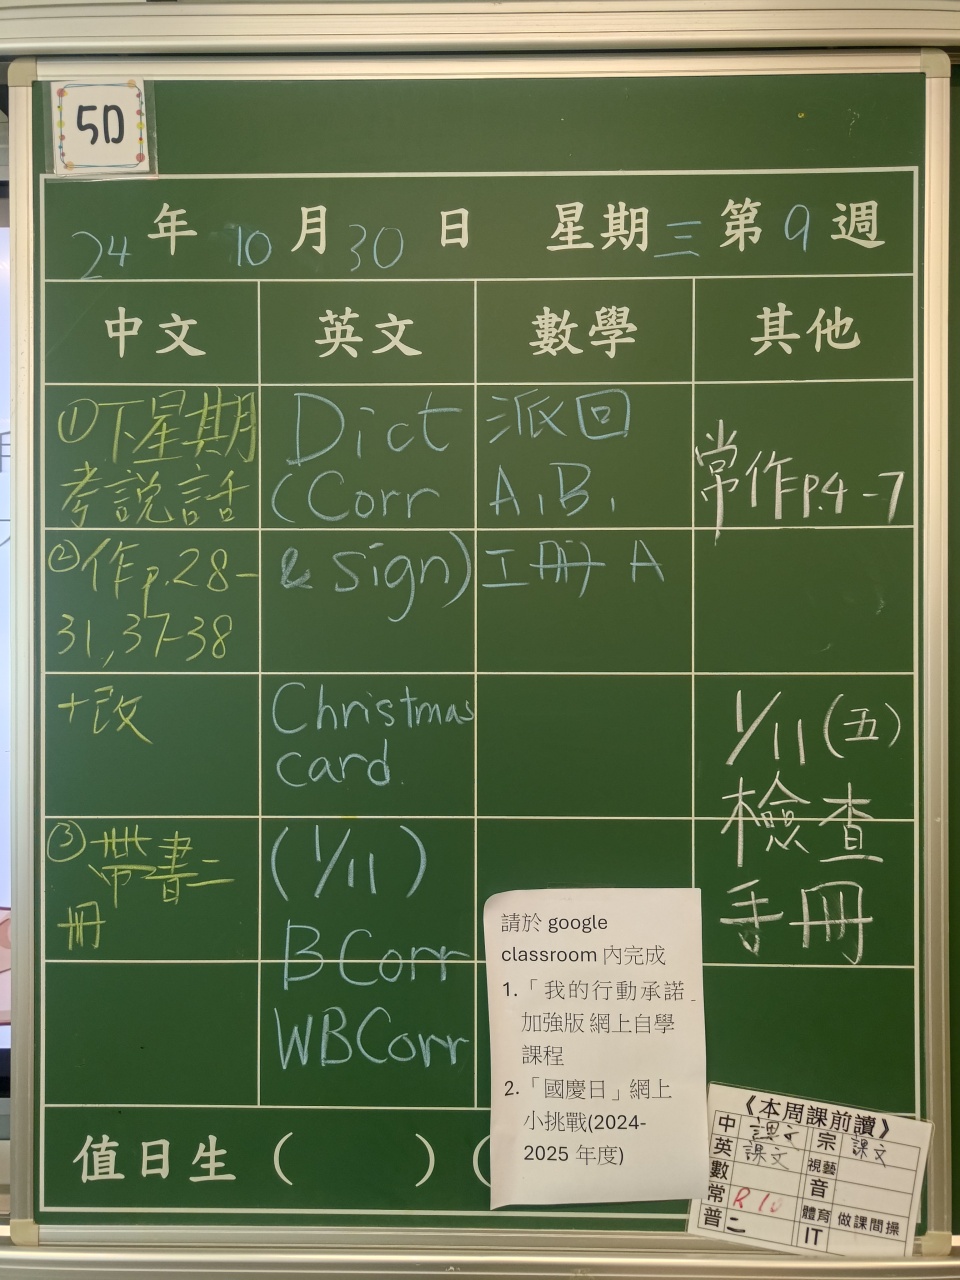 5D
24年 10月30日 星期三 第9週
中文 英文 數學 其他
①下星期
考說話
②作p.28-
31,37-38
+改
③帶書二
冊
Dict
(Corr
& sign)
Christmas
card.
(1/11)
BCorr
WBCorr
派回
A,B,
工冊 A
常作P.4-7
1/11 (五)
檢查
手冊
請於 google
classroom 內完成
1.「我的行動承諾」
加強版 網上自學
課程
2.「國慶日」網上
小挑戰(2024-
2025 年度)
值日生 ( ) (
《本周課前讀》
中 課文 宗 課文
英 課文 視藝
數 音
常 體育 做課間操
普 二 IT